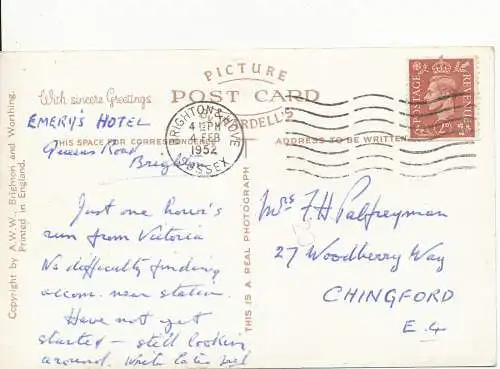 PICTURE
POST CARD
With sincere Greetings
WARDELL'S
THIS SPACE FOR CORRESPONDENCE
ADDRESS TO BE WRITTEN
EMERY'S HOTEL
Queens Road
Just one hour's
run from Victoria
No difficulty finding
accom. near station.
Have not yet
started – still looking
around. Write later
Copyright by A.W.W., Brighton and Worthing.
Printed in England.
THIS IS A REAL PHOTOGRAPH
BRIGHTON & HOVE
4 FEB
1952
SUSSEX
POSTAGE
REVENUE
Mrs F. H. Palfreyman
27 Woodberry Way
CHINGFORD
E. 4